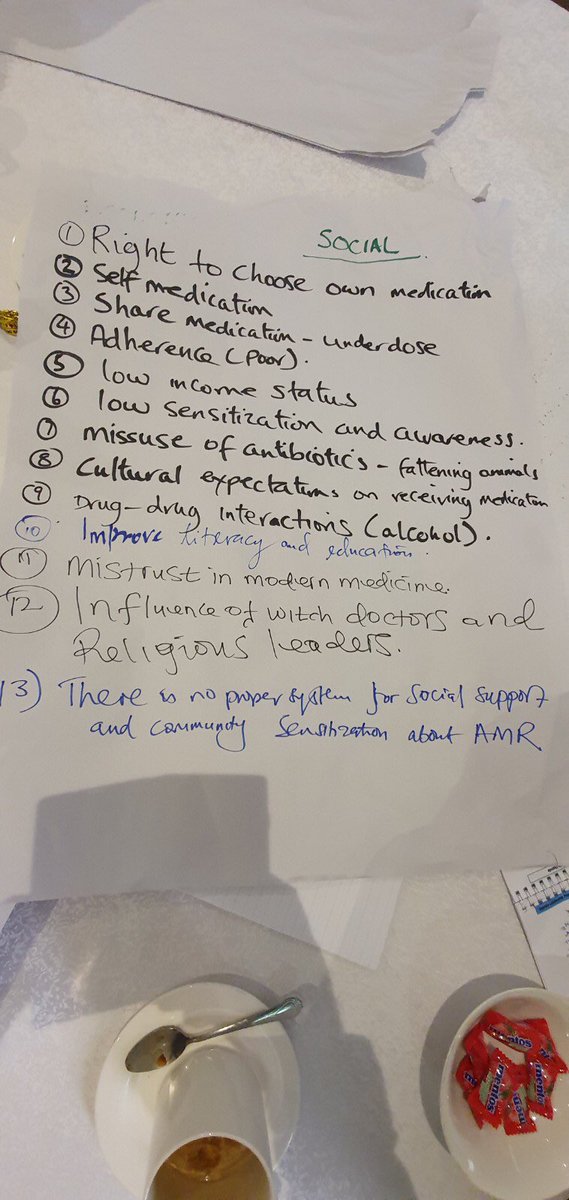 SOCIAL
① Right to choose own medication
② Self medication
③ Share medication - underdose
④ Adherence (poor).
⑤ low income status
⑥ low sensitization and awareness.
⑦ Missuse of antibiotics - fattening animals
⑧ Cultural expectations on receiving medication
⑨ Drug-drug interactions (alcohol).
⑩ Improve literacy and education.
⑪ Mistrust in modern medicine.
⑫ Influence of witch doctors and
Religious leaders.
13) There is no proper system for social support
and community sensitization about AMR
mentos